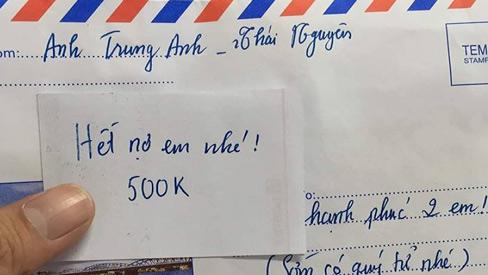 om: Anh Trung Anh - Thái Nguyên
TEM
STAMP
Hết nợ em nhé!
500K
o:
hạnh phúc 2 em!
(Sớm có quí tử nhé)